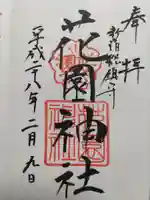 奉拝
新宿総鎮守
花園神社
平成二八年二月九日